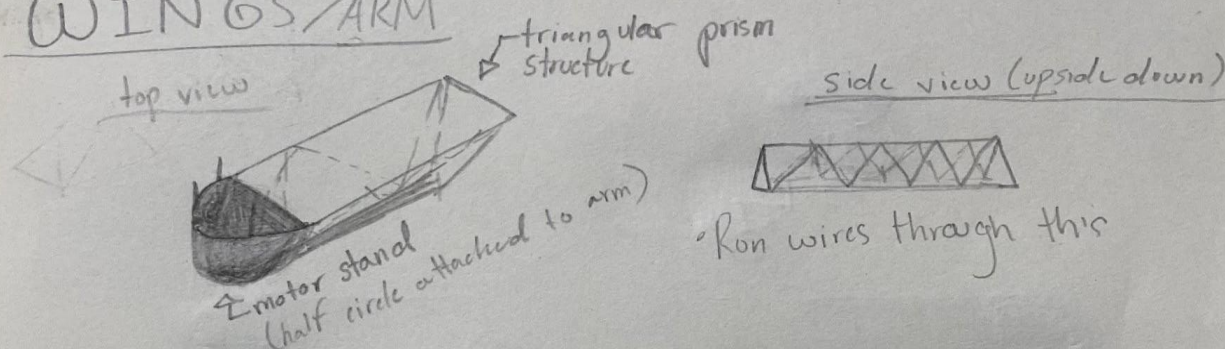 WINGS/ARM
top view
triangular prism
structure
side view (upside down)
motor stand
(half circle attached to arm)
•Run wires through this